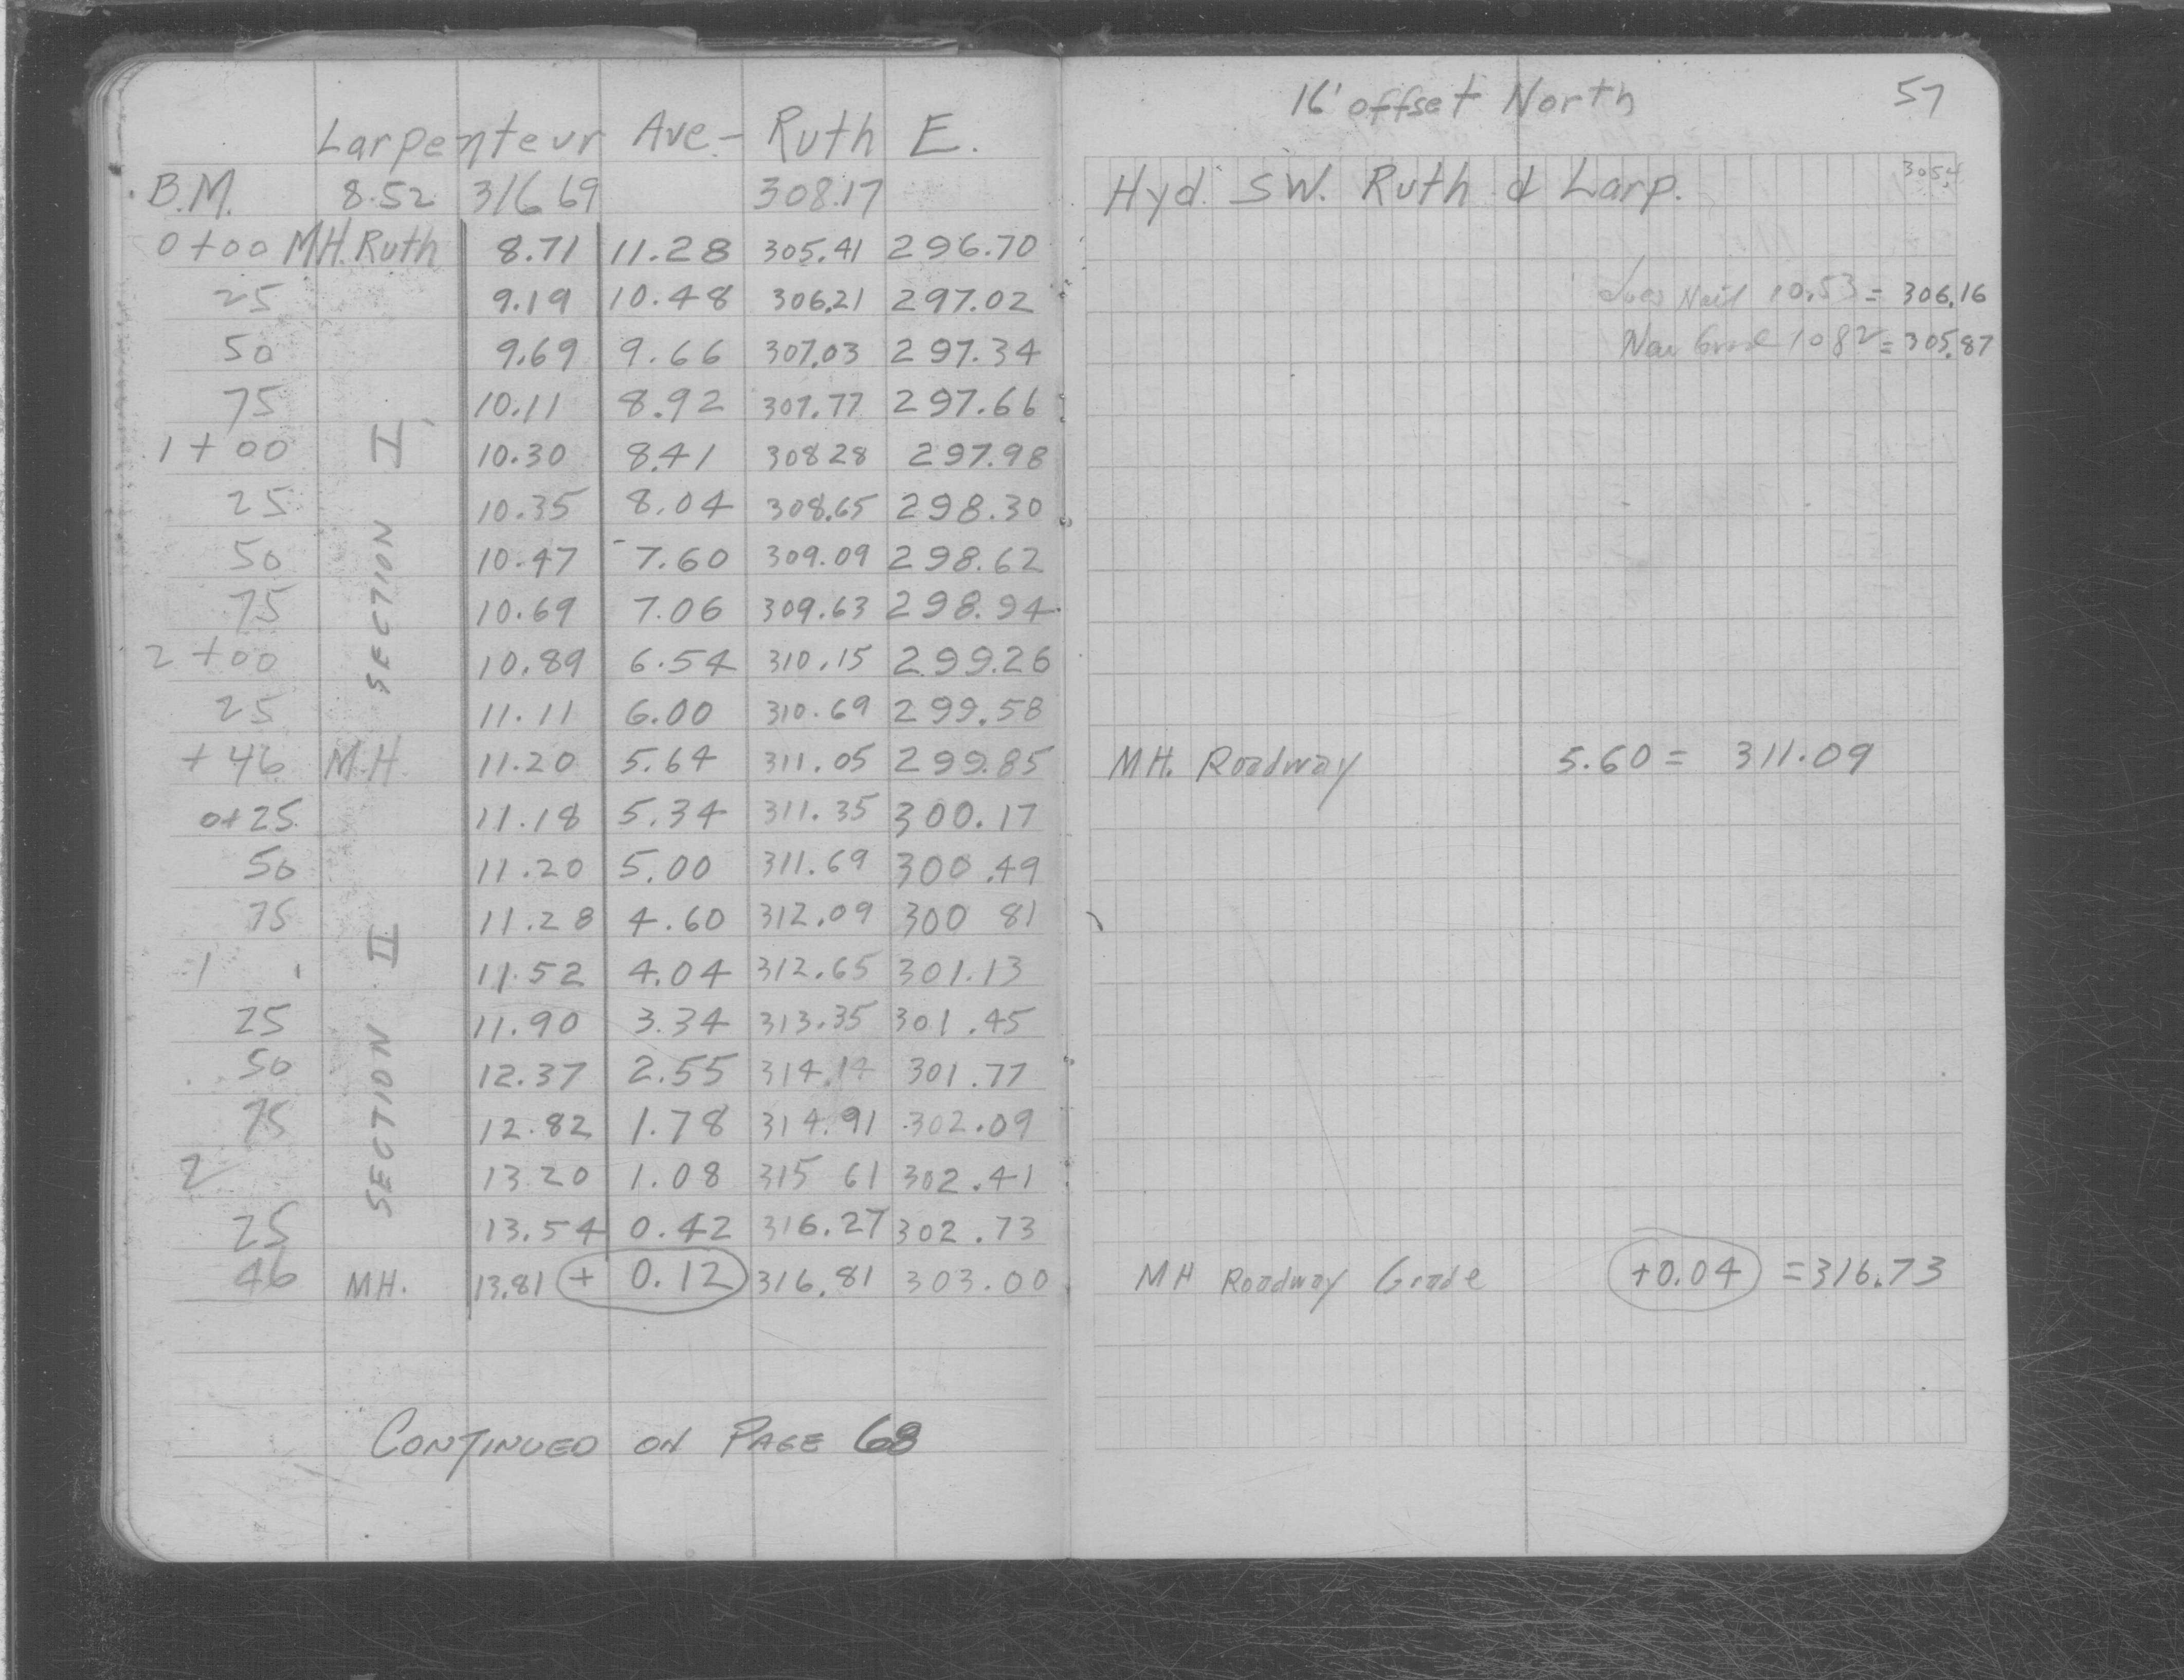 Larpenteur Ave.- Ruth E.
B.M. 8.52 316.69 308.17
0+00 MH. Ruth 8.71 11.28 305.41 296.70
25 9.19 10.48 306.21 297.02
50 9.69 9.66 307.03 297.34
75 10.11 8.92 307.77 297.66
1+00 10.30 8.41 308 28 297.98
25 10.35 8.04 308.65 298.30
50 10.47 7.60 309.09 298.62
75 10.69 7.06 309.63 298.94
2+00 10.89 6.54 310.15 299.26
25 11.11 6.00 310.69 299.58
+46 M.H. 11.20 5.64 311.05 299.85
0+25 11.18 5.34 311.35 300.17
50 11.20 5.00 311.69 300.49
75 11.28 4.60 312.09 300 81
1 11.52 4.04 312.65 301.13
25 11.90 3.34 313.35 301.45
50 12.37 2.55 314.14 301.77
75 12.82 1.78 314.91 302.09
2 13.20 1.08 315 61 302.41
25 13.54 0.42 316.27 302.73
46 MH. 13.81 + 0.12 316.81 303.00
SECTION I
SECTION II
CONTINUED ON PAGE 68
16' offset North 57
Hyd. SW. Ruth & Larp.
Nail 10.53 = 306.16
10 82 = 305.87
MH. Roadway 5.60 = 311.09
MH Roadway Grade +0.04 = 316.73